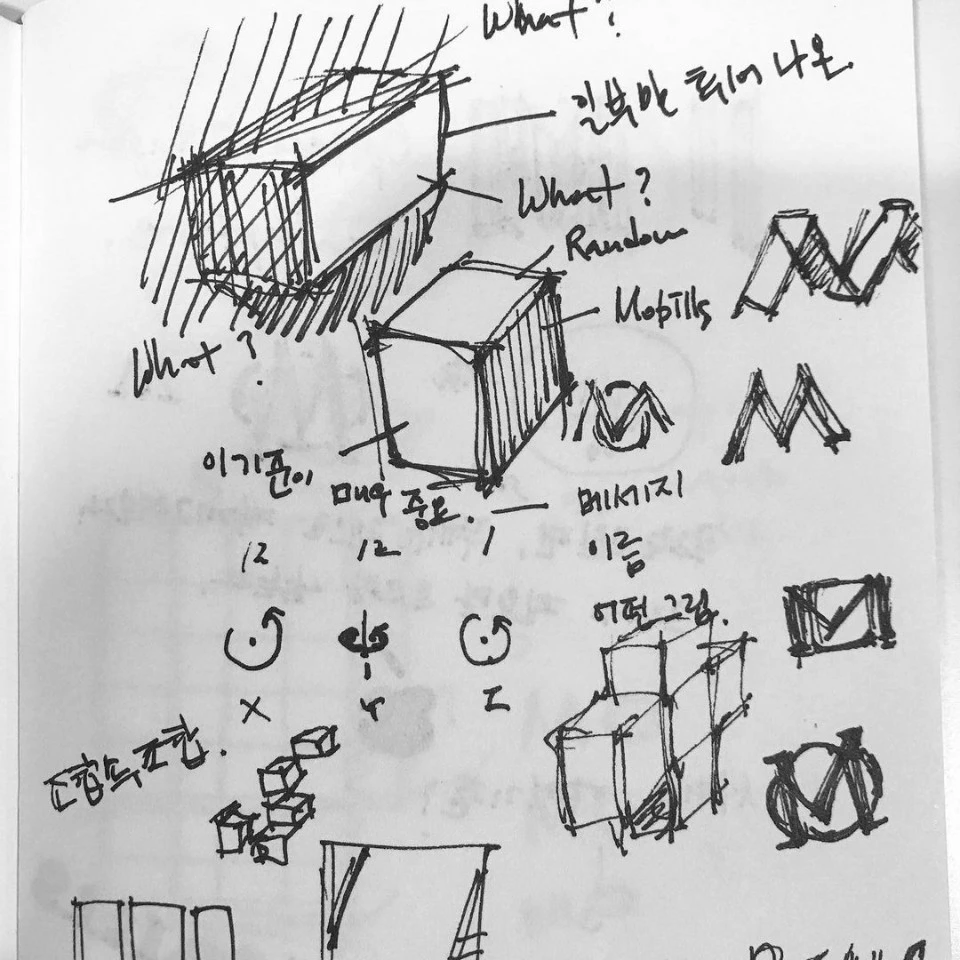 What?
일부만 튀어 나온.
What?
Random
Mobills
What?
이기준이 매우 중요. — 메세지
12 12 1 이름
어떤 그림.
X Y Z
조합의 조합.